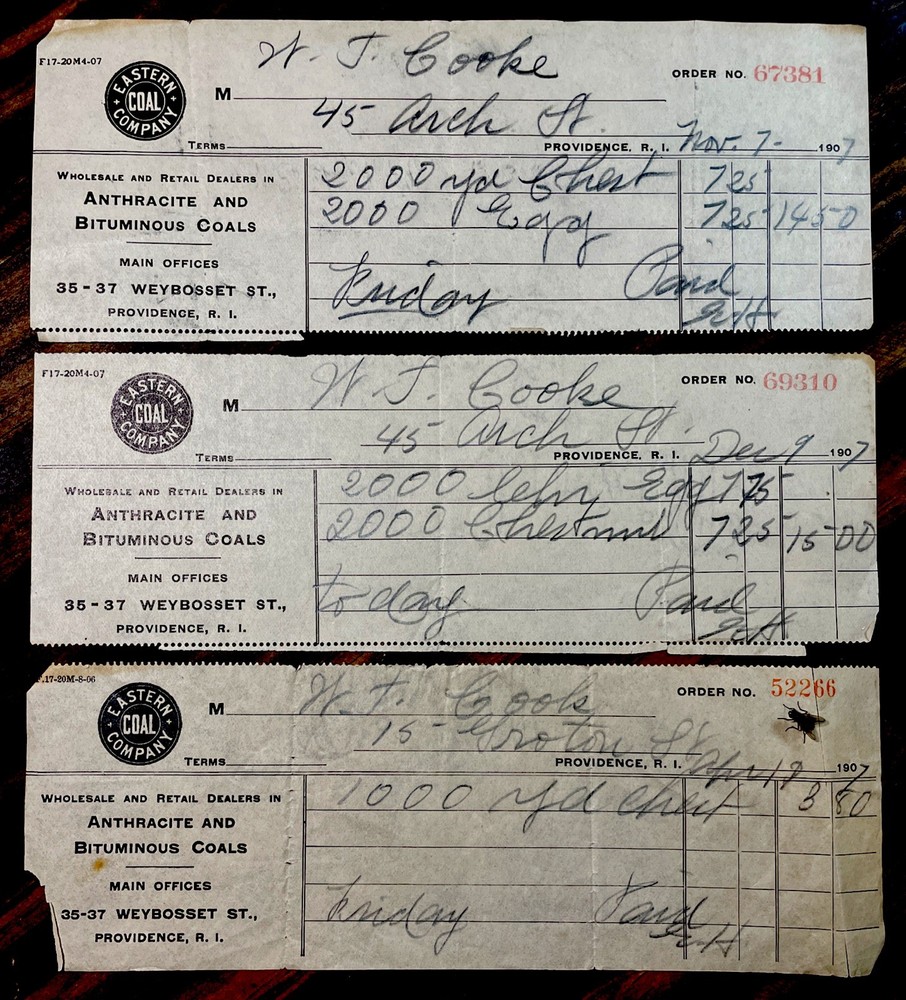 F17-20M4-07
W. J. Cooke
ORDER NO. 67381
EASTERN COAL COMPANY
M
45 Arch St.
TERMS
PROVIDENCE, R. I. Nov. 7- 1907
WHOLESALE AND RETAIL DEALERS IN
ANTHRACITE AND
BITUMINOUS COALS
MAIN OFFICES
35-37 WEYBOSSET ST.,
PROVIDENCE, R. I.
2000 yd Chest 7 25
2000 Egg 7 25 14 50
Friday Paid
F17-20M4-07
W. J. Cooke
ORDER NO. 69310
EASTERN COAL COMPANY
M
45 Arch St.
TERMS
PROVIDENCE, R. I. Dec 9 1907
WHOLESALE AND RETAIL DEALERS IN
ANTHRACITE AND
BITUMINOUS COALS
MAIN OFFICES
35-37 WEYBOSSET ST.,
PROVIDENCE, R. I.
2000 Lehi Egg 7 75
2000 Chestnut 7 25 15 00
today Paid
F.17-20M-8-06
W. F. Cook
ORDER NO. 52266
EASTERN COAL COMPANY
M
15 Groton St
TERMS
PROVIDENCE, R. I. Apr 19 1907
WHOLESALE AND RETAIL DEALERS IN
ANTHRACITE AND
BITUMINOUS COALS
MAIN OFFICES
35-37 WEYBOSSET ST.,
PROVIDENCE, R. I.
1000 yd chest 3 80
Friday Paid